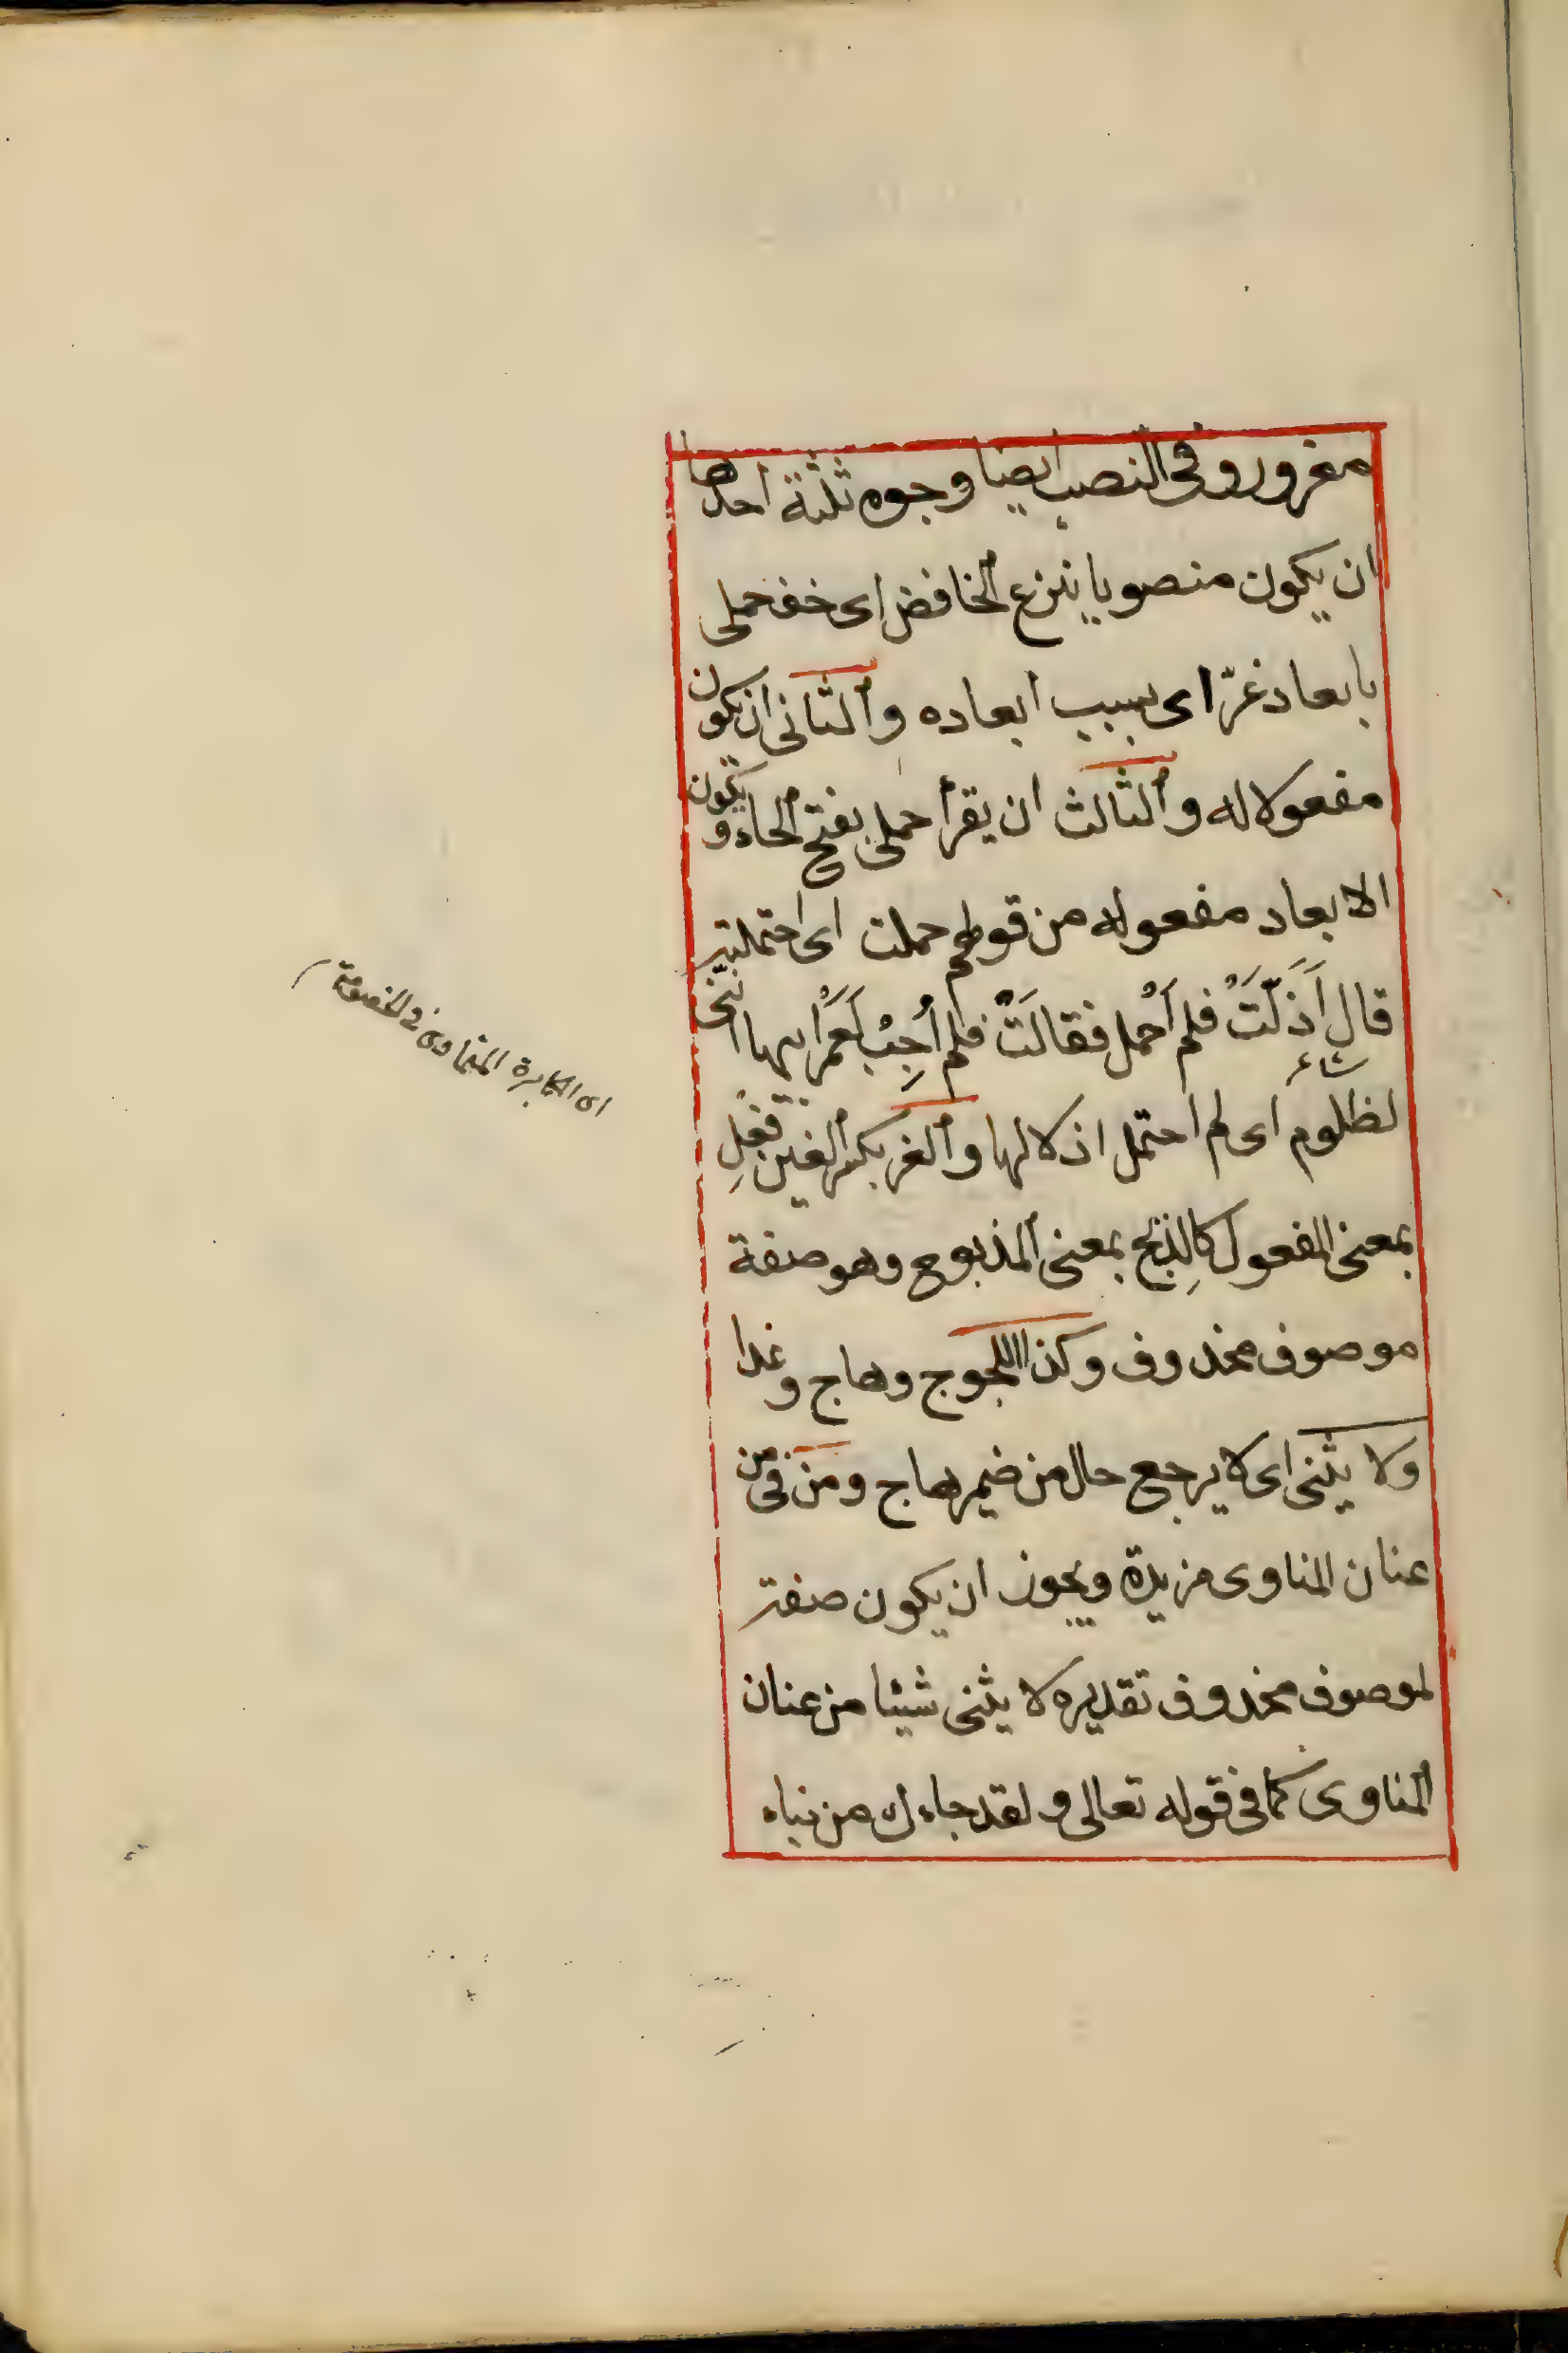 مغرور وفى النصب ايضا وجوه ثلثة احدها
ان يكون منصوبا بنزع الخافض اى خف حملى
بابعاد غرّ اى بسبب ابعاده والثانى ان يكون
مفعولا له والثالث ان يقرأ حملى بفتح الحاء ويكون
الابعاد مفعوله من قولهم حملت اى احتملته
قال اَذَلَّتَْ فلم اَحْمل فقالَتْ فلم اُجِبْ لَعَمْرُ ابيها اننى
شاعر
لظلوم اى لم احتمل اذلالها والغر بكسر الغين فِعْل
بمعنى المفعول كالذِبح بمعنى المذبوح وهو صفة
موصوف محذوف وكذا اللجوج وهاج وغدا
ولا يثنى اى لا يرجع حال من ضمير هاج ومن فى من
عنان المناوى مزيدة ويجوز ان يكون صفة
لموصوف محذوف تقديره لا يثنى شيئا من عنان
المناوى كما فى قوله تعالى ولقد جاءك من نباء
اى المكابرة المتمادى فى الخصومة